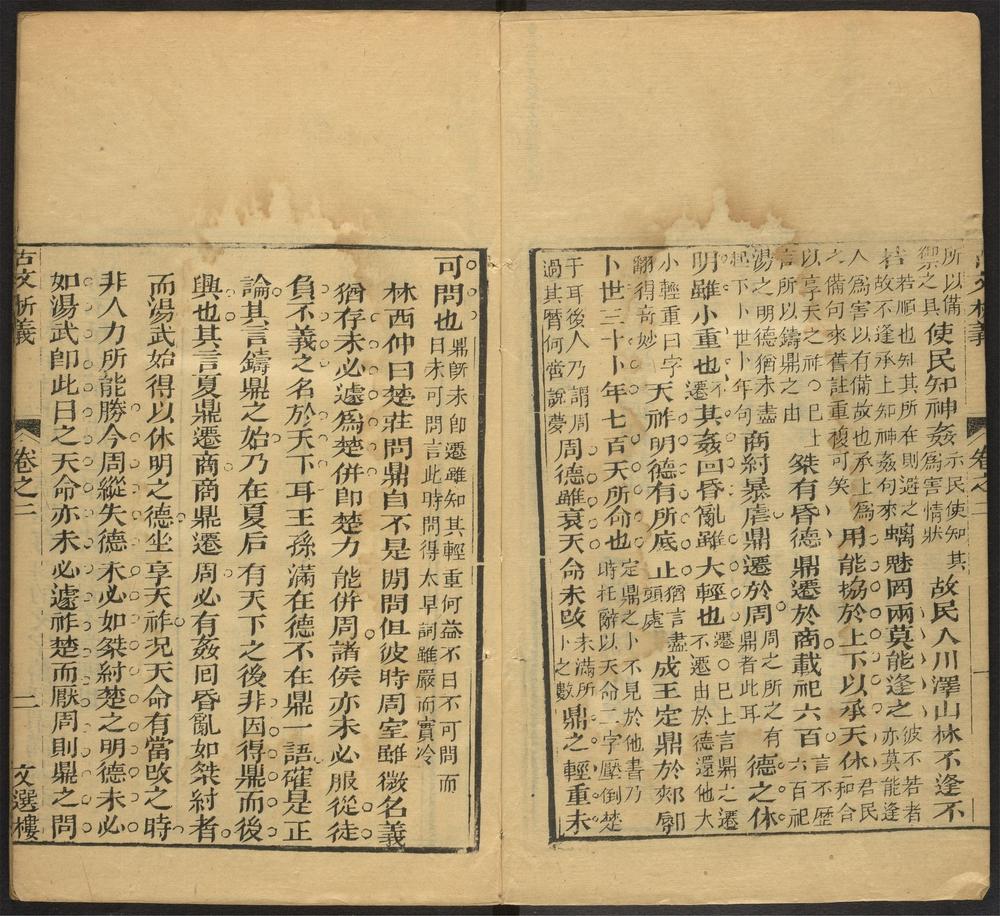 古文析義 卷之二 一
所以備
禦之具
使民知神姦
示民使知其
姦為害情狀
故民入川澤山林不逢不
若
若順也知其所在則避之
故不逢承上知神姦句來
螭魅罔兩莫能逢之
彼不若者
亦莫能逢
人為害以有備故也承上為
之備句來舊註重複可笑
用能協於上下以承天休
君民和合
以享天之祚○已上
言所以鑄鼎之由
桀有昏德鼎遷於商載祀六百
言不歴
六百祀
湯之明德猶未盡
起下卜世卜年句
商紂暴虐鼎遷於周
周之所之有
鼎者此耳
德之休
明雖小重也
不遷
其姦回昏亂雖大輕也
遷○已上言鼎之遷
不遷由於德還他大
小輕重曰字
翻得奇妙
天祚明德有所厎止
猶言盡
頭處
成王定鼎於郟鄏
卜世三十卜年七百天所命也
定鼎之卜不見於他書乃
時托辭以天命二字壓倒楚
于耳後人乃謂周
過其曆何啻說夢
周德雖衰天命未改
未滿所
卜之數
鼎之輕重未
可問也
鼎旣未卽遷雖知其輕重何益不曰不可問而
曰未可問言此時問得太早詞雖嚴而實冷
林西仲曰楚莊問鼎自不是閒問但彼時周室雖微名義
猶存未必遽爲楚併卽楚力能併周諸侯亦未必服從徒
負不義之名於天下耳王孫滿在德不在鼎一語確是正
論其言鑄鼎之始乃在夏后有天下之後非因得鼎而後
興也其言夏鼎遷商商鼎遷周必有姦回昏亂如桀紂者
而湯武始得以休明之德坐享天祚况天命有當改之時
非人力所能勝今周縱失德未必如桀紂楚之明德未必
如湯武卽此日之天命亦未必遽祚楚而厭周則鼎之問
古文析義 卷之二 二 文選樓